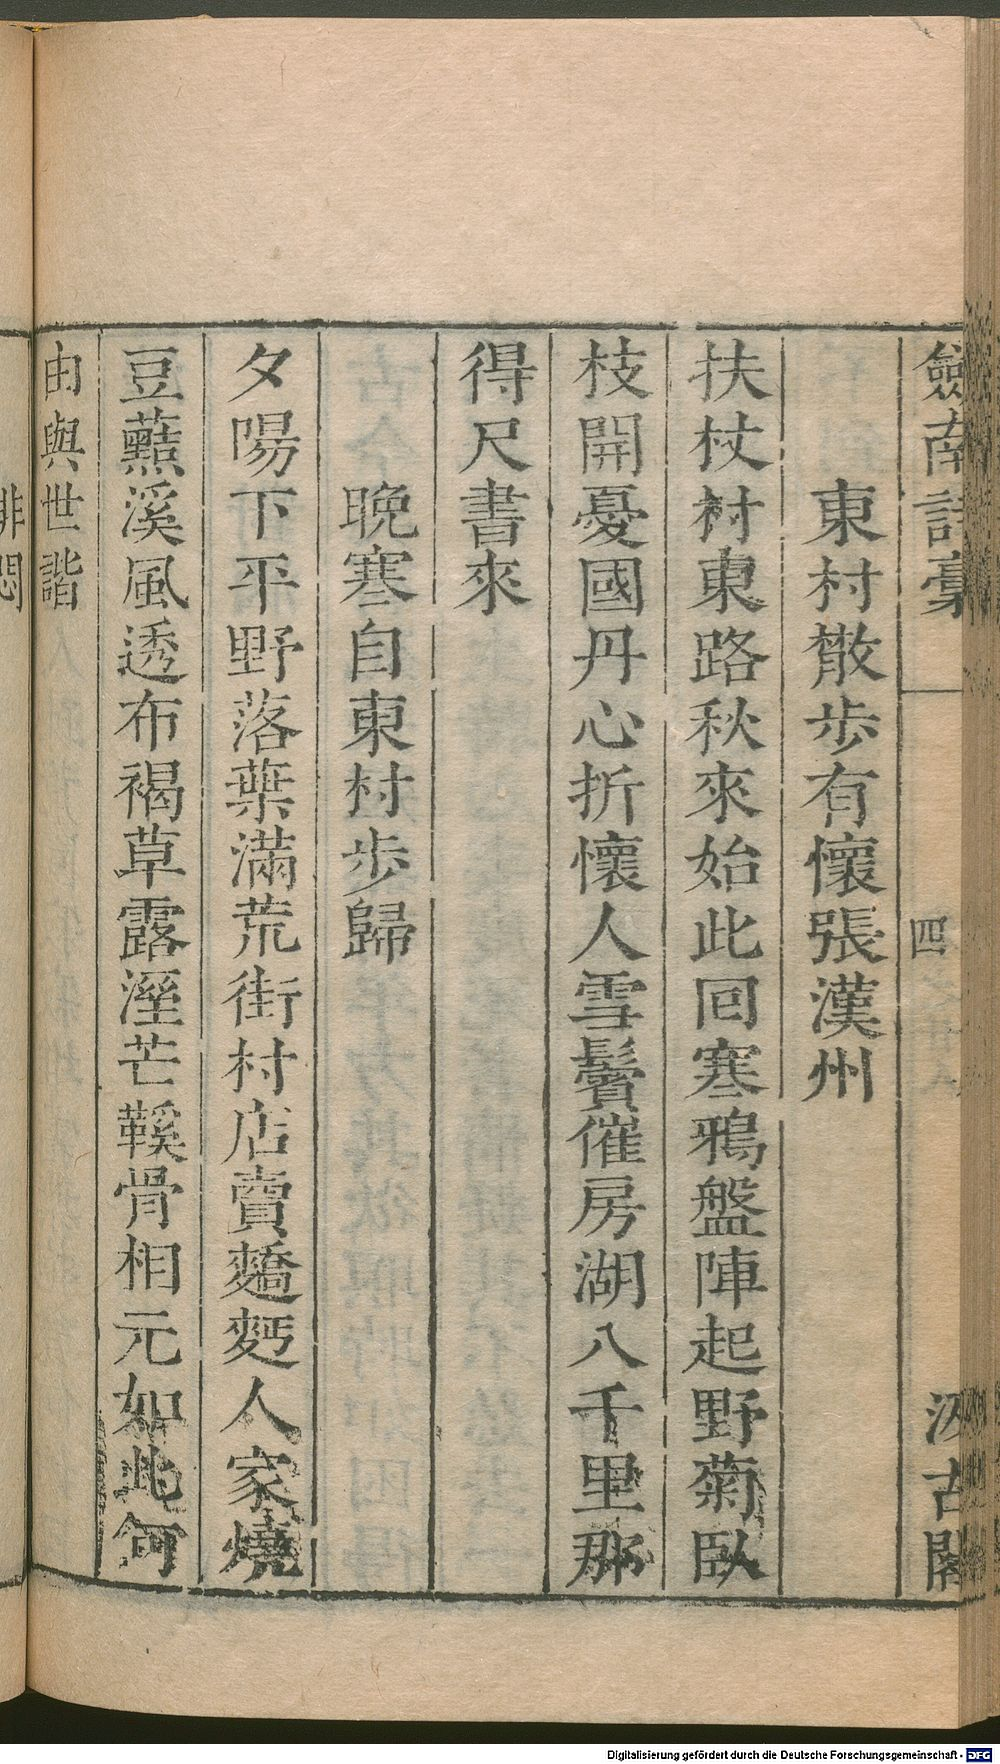 劔南詩藁 四 汲古閣
東村散歩有懷張漢州
扶杖村東路秋來始此回寒鴉盤陣起野菊臥
枝開憂國丹心折懷人雪鬢催房湖八千里那
得尺書來
晩寒自東村歩歸
夕陽下平野落葉滿荒街村店賣䴔麫人家燒
豆𧄍溪風透布褐草露溼芒鞵骨相元如此何
由與世諧
排悶
Digitalisierung gefördert durch die Deutsche Forschungsgemeinschaft - DFG